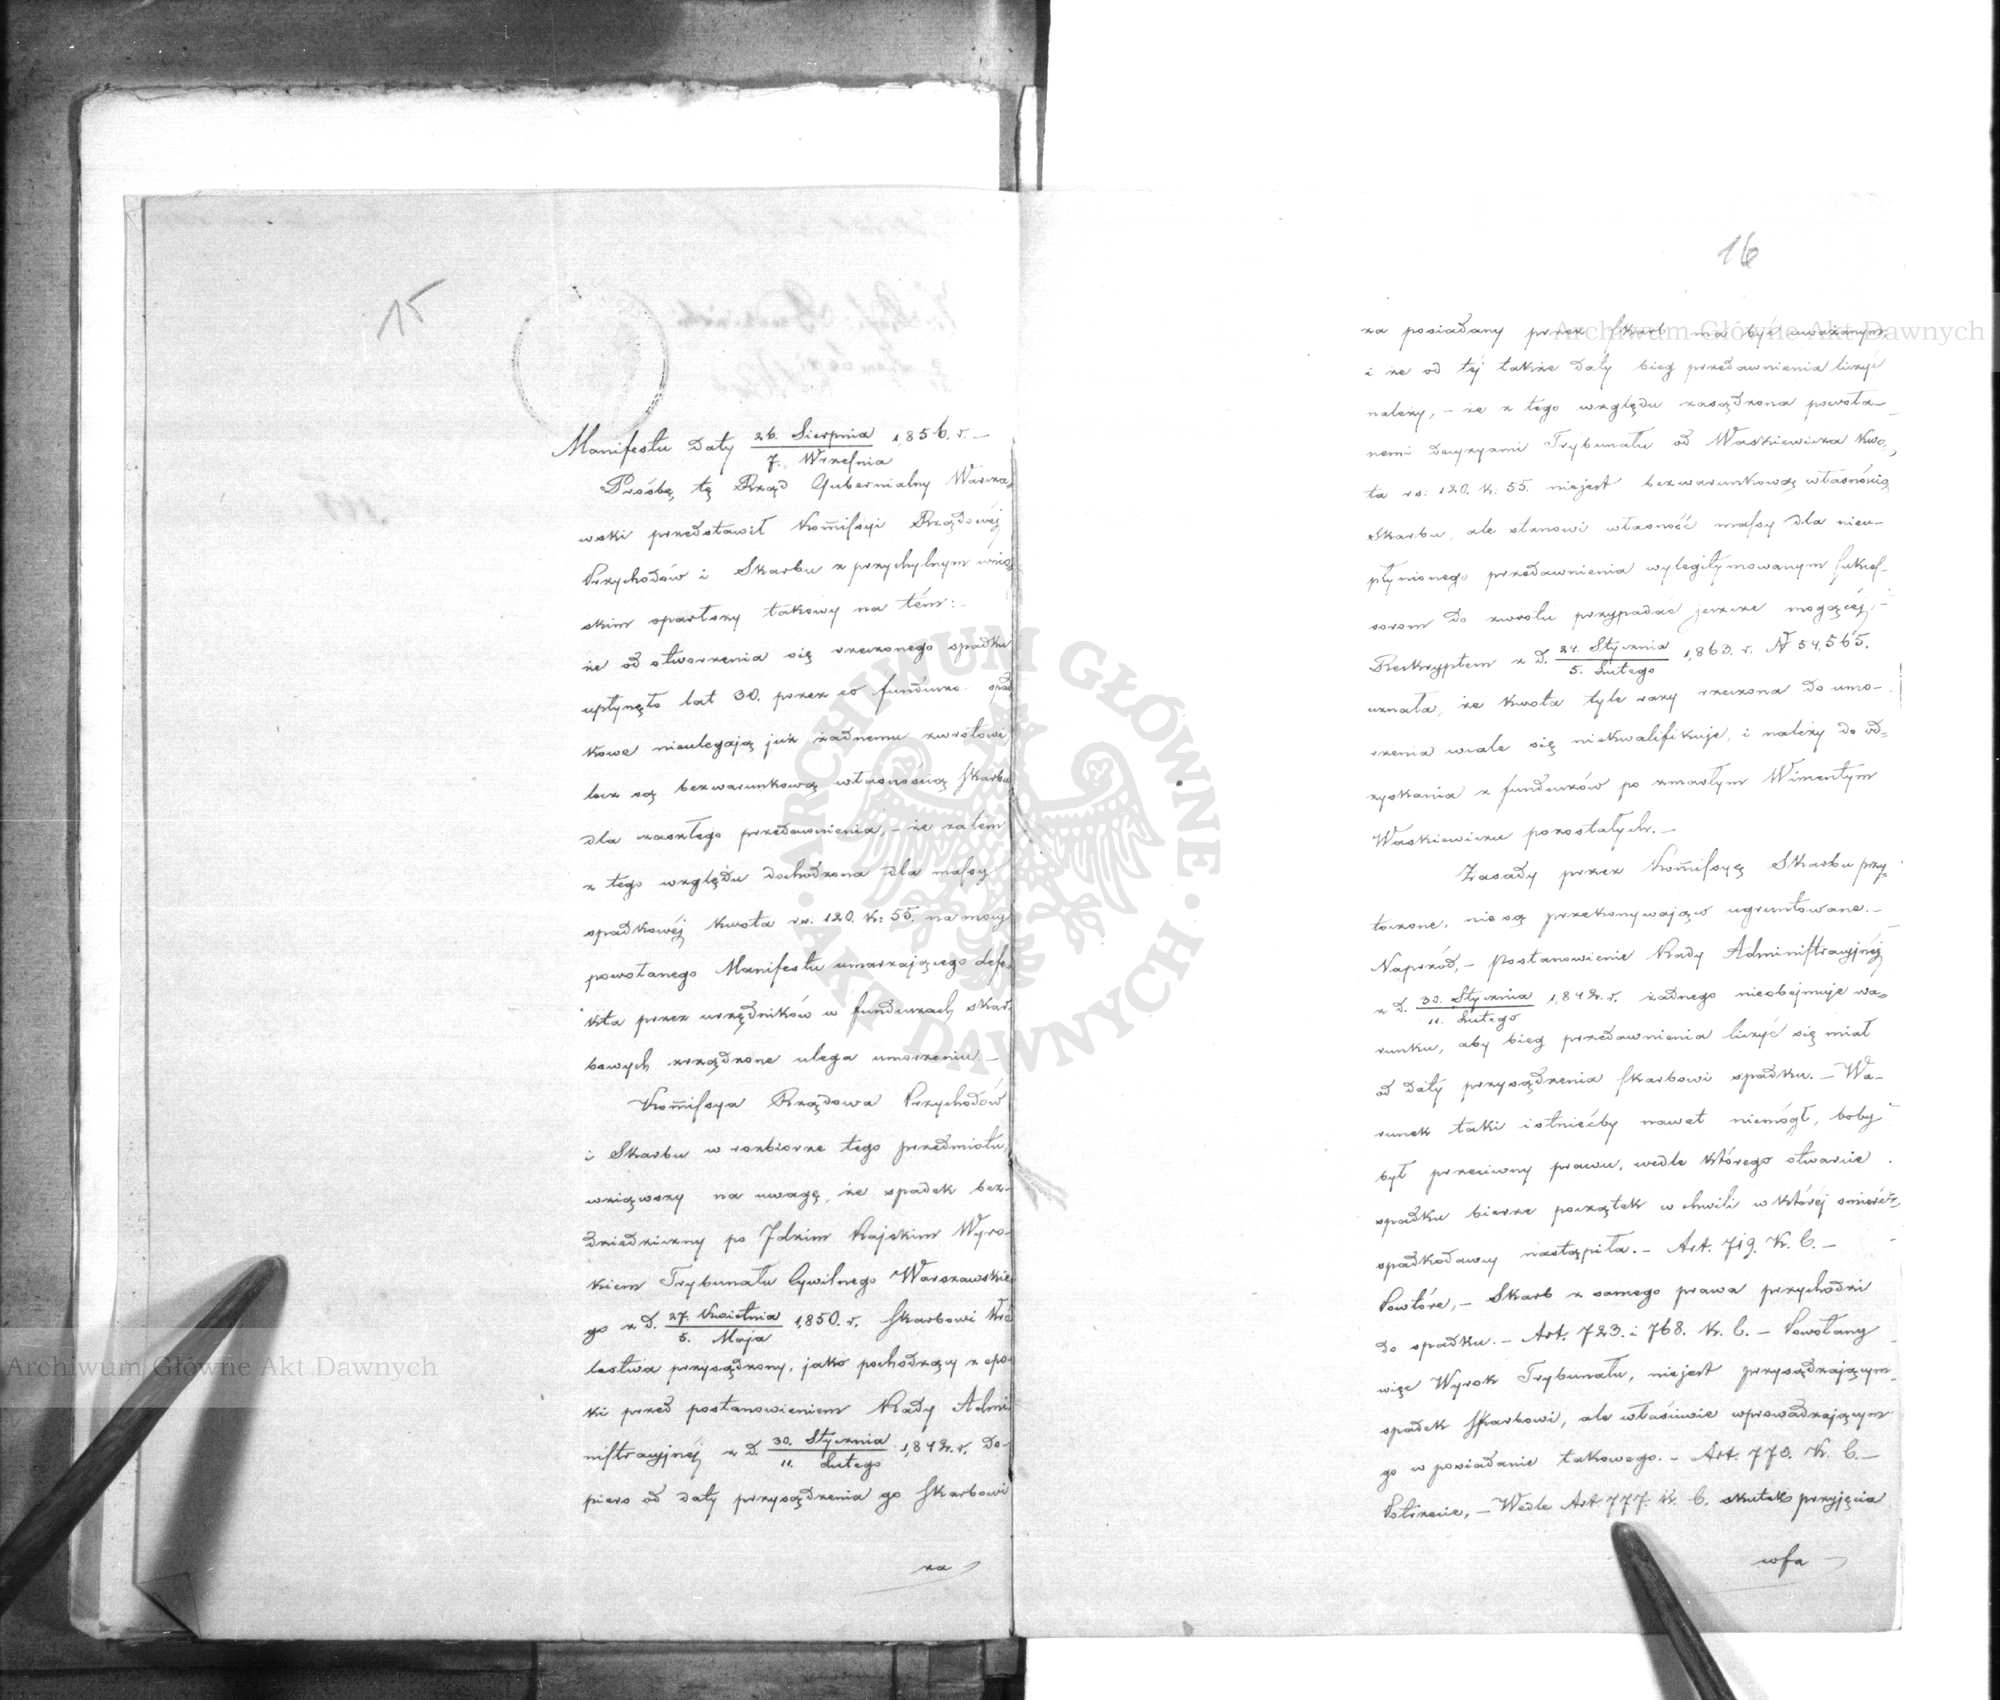 15
Manifestu daty 26. Sierpnia / 7. Wrzesnia 1,856. r. –
Prośbę tę Rząd Gubernialny Warsza-
wski przedstawił Kommissyi Rządowéj
Przychodów i Skarbu z przychylnym wnio-
skim oparłszy takowy na tém: –
że od otworzenia się rzeczonego spadku
upłynęło lat 30. przez co fundusze spad
kowe nieulegają już żadnemu zwrotowi,
lecz są bezwarunkową własnością Skarbu
dla zaszłego przedawnienia, – że zatém
z tego względu dochodzona dla massy
spadkowéj kwota rs: 120. k: 55. na mocy
powołanego Manifestu umarzającego defe-
kta przez urzędników w funduszach skar-
bowych zrządzone ulega umorzeniu –
Kommissya Rządowa Przychodów
i Skarbu w rozbiorze tego przedmiotu,
wziąwszy na uwagę, że spadek bez-
dziedziczny po Idzim Rajskim Wyro-
kiem Trybunału Cywilnego Warszawskie-
go z d. 27. Kwietnia / 5. Maja 1,850. r. Skarbowi Kró
lestwa przysądzony, jako pochodzący z epo-
ki przed postanowieniem Rady Admi
nistracyjnéj z d. 30. Stycznia / 11. Lutego 1,842. r. do-
piero od daty przysądzenia go Skarbowi
za
16
za posiadany przez Skarb ma być uważanym
i że od téj także daty bieg przedawnienia liczyć
należy, – że z tego względu zasądzona powoła-
nemi decyzyami Trybunału od Waskiewicza kwo-
ta rs: 120. k: 55. niejest bezwarunkową własnością
Skarbu, ale stanowi własność massy dla nieu-
płynionego przedawnienia wylegitymowanym sukces-
sorom do zwrotu przypadać jeszcze mogącéj, –
Reskryptem z d. 24. Stycznia / 5. Lutego 1,863. r. N 54,565.
uznała, że kwota tyle razy rzeczona do umo-
rzenia wcale się niekwalifikuje, i należy do od-
zyskania z funduszów po zmarłym Wincentym
Waskiewiczu pozostałych. –
Zasady przez Kommissyę Skarbu przy-
toczone, nie są przekonywająco ugruntowane. –
Naprzód, – Postanowienie Rady Administracyjnéj
z d. 30. Stycznia / 11. Lutego 1,842. r. żadnego nieobejmuje wa-
runku, aby bieg przedawnienia liczyć się miał
od daty przysądzenia Skarbowi spadku. – Wa-
runek taki istniećby nawet niemógł, boby
był przeciwny prawu, wedle którego otwarcie
spadku bierze początek w chwili w któréj śmierć
spadkodawcy nastąpiła. – Art. 719. K. C. –
Powtóre, – Skarb z samego prawa przychodzi
do spadku. – Art. 723. i 768. K. C. – Powołany
więc Wyrok Trybunału, niejest przysądzającym
spadek Skarbowi, ale właściwie wprowadzającym
go w posiadanie takowego. – Art. 770. K. C. –
Potrzecie, – Wedle Art. 777. K. C. skutek przyjęcia
wsa
Archiwum Główne Akt Dawnych
Archiwum Główne Akt Dawnych
ARCHIWUM GŁÓWNE • AKT DAWNYCH •